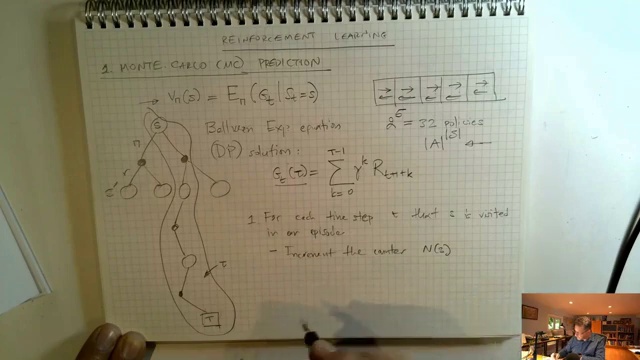 REINFORCEMENT LEARNING
1. MONTE CARLO (MC) PREDICTION
→ Vπ(s) = Eπ(Gt | St = s)
Bellman Exp. equation
2^5 = 32 policies
|A|^|S| ←
(DP) solution:
Gt(τ) = Σ_{k=0}^{T-1} γ^k R_{t+1+k}
1. For each time step t that s is visited
in an episode
- Increment the counter N(s)
S
π
r
s'
τ
T